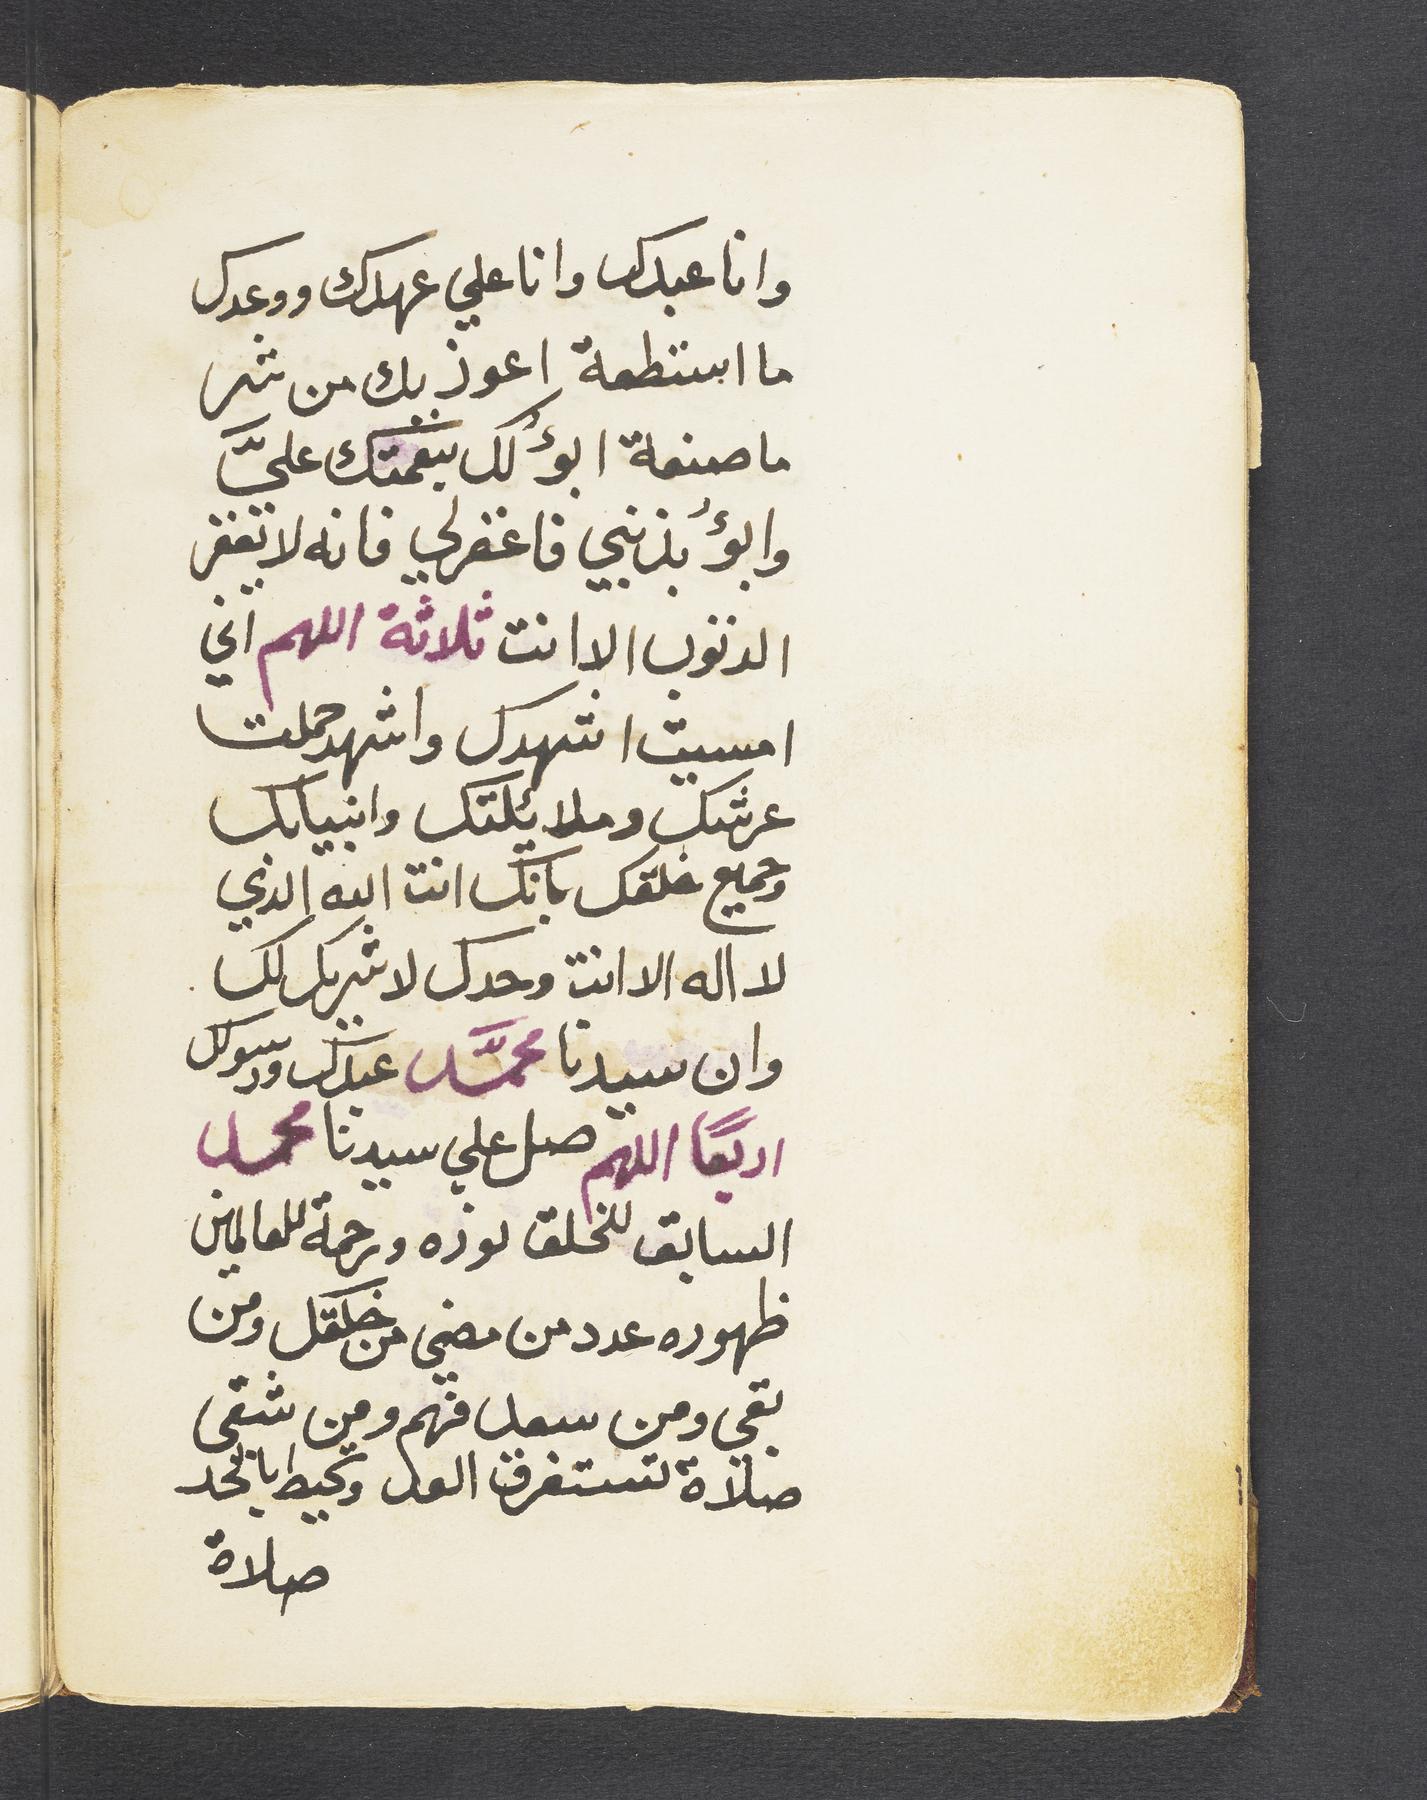 وانا عبدك وانا علي عهدك ووعدك
ما استطعة اعوذ بك من شر
ما صنعة ابوؤُ لك بنعمتك عليَّ
وابوؤُ بذنبي فاغفرلي فانه لا يغفر
الذنوب الا انت ثلاثة اللهم اني
امسيت اشهدك واشهد حملت
عرشك وملائكتك وانبيائك
وجميع خلقك بانك انت الله الذي
لا اله الا انت وحدك لا شريك لك
وان سيدنا محمَّد عبدك ورسولك
اربعًا اللهم صل علي سيدنا محمد
السابق للخلق نوره ورحمة للعالمين
ظهوره عدد من مضي من خلقك ومن
بقي ومن سعد منهم ومن شقى
صلاة تستغرق العد وتحيط بالحد
صلاة